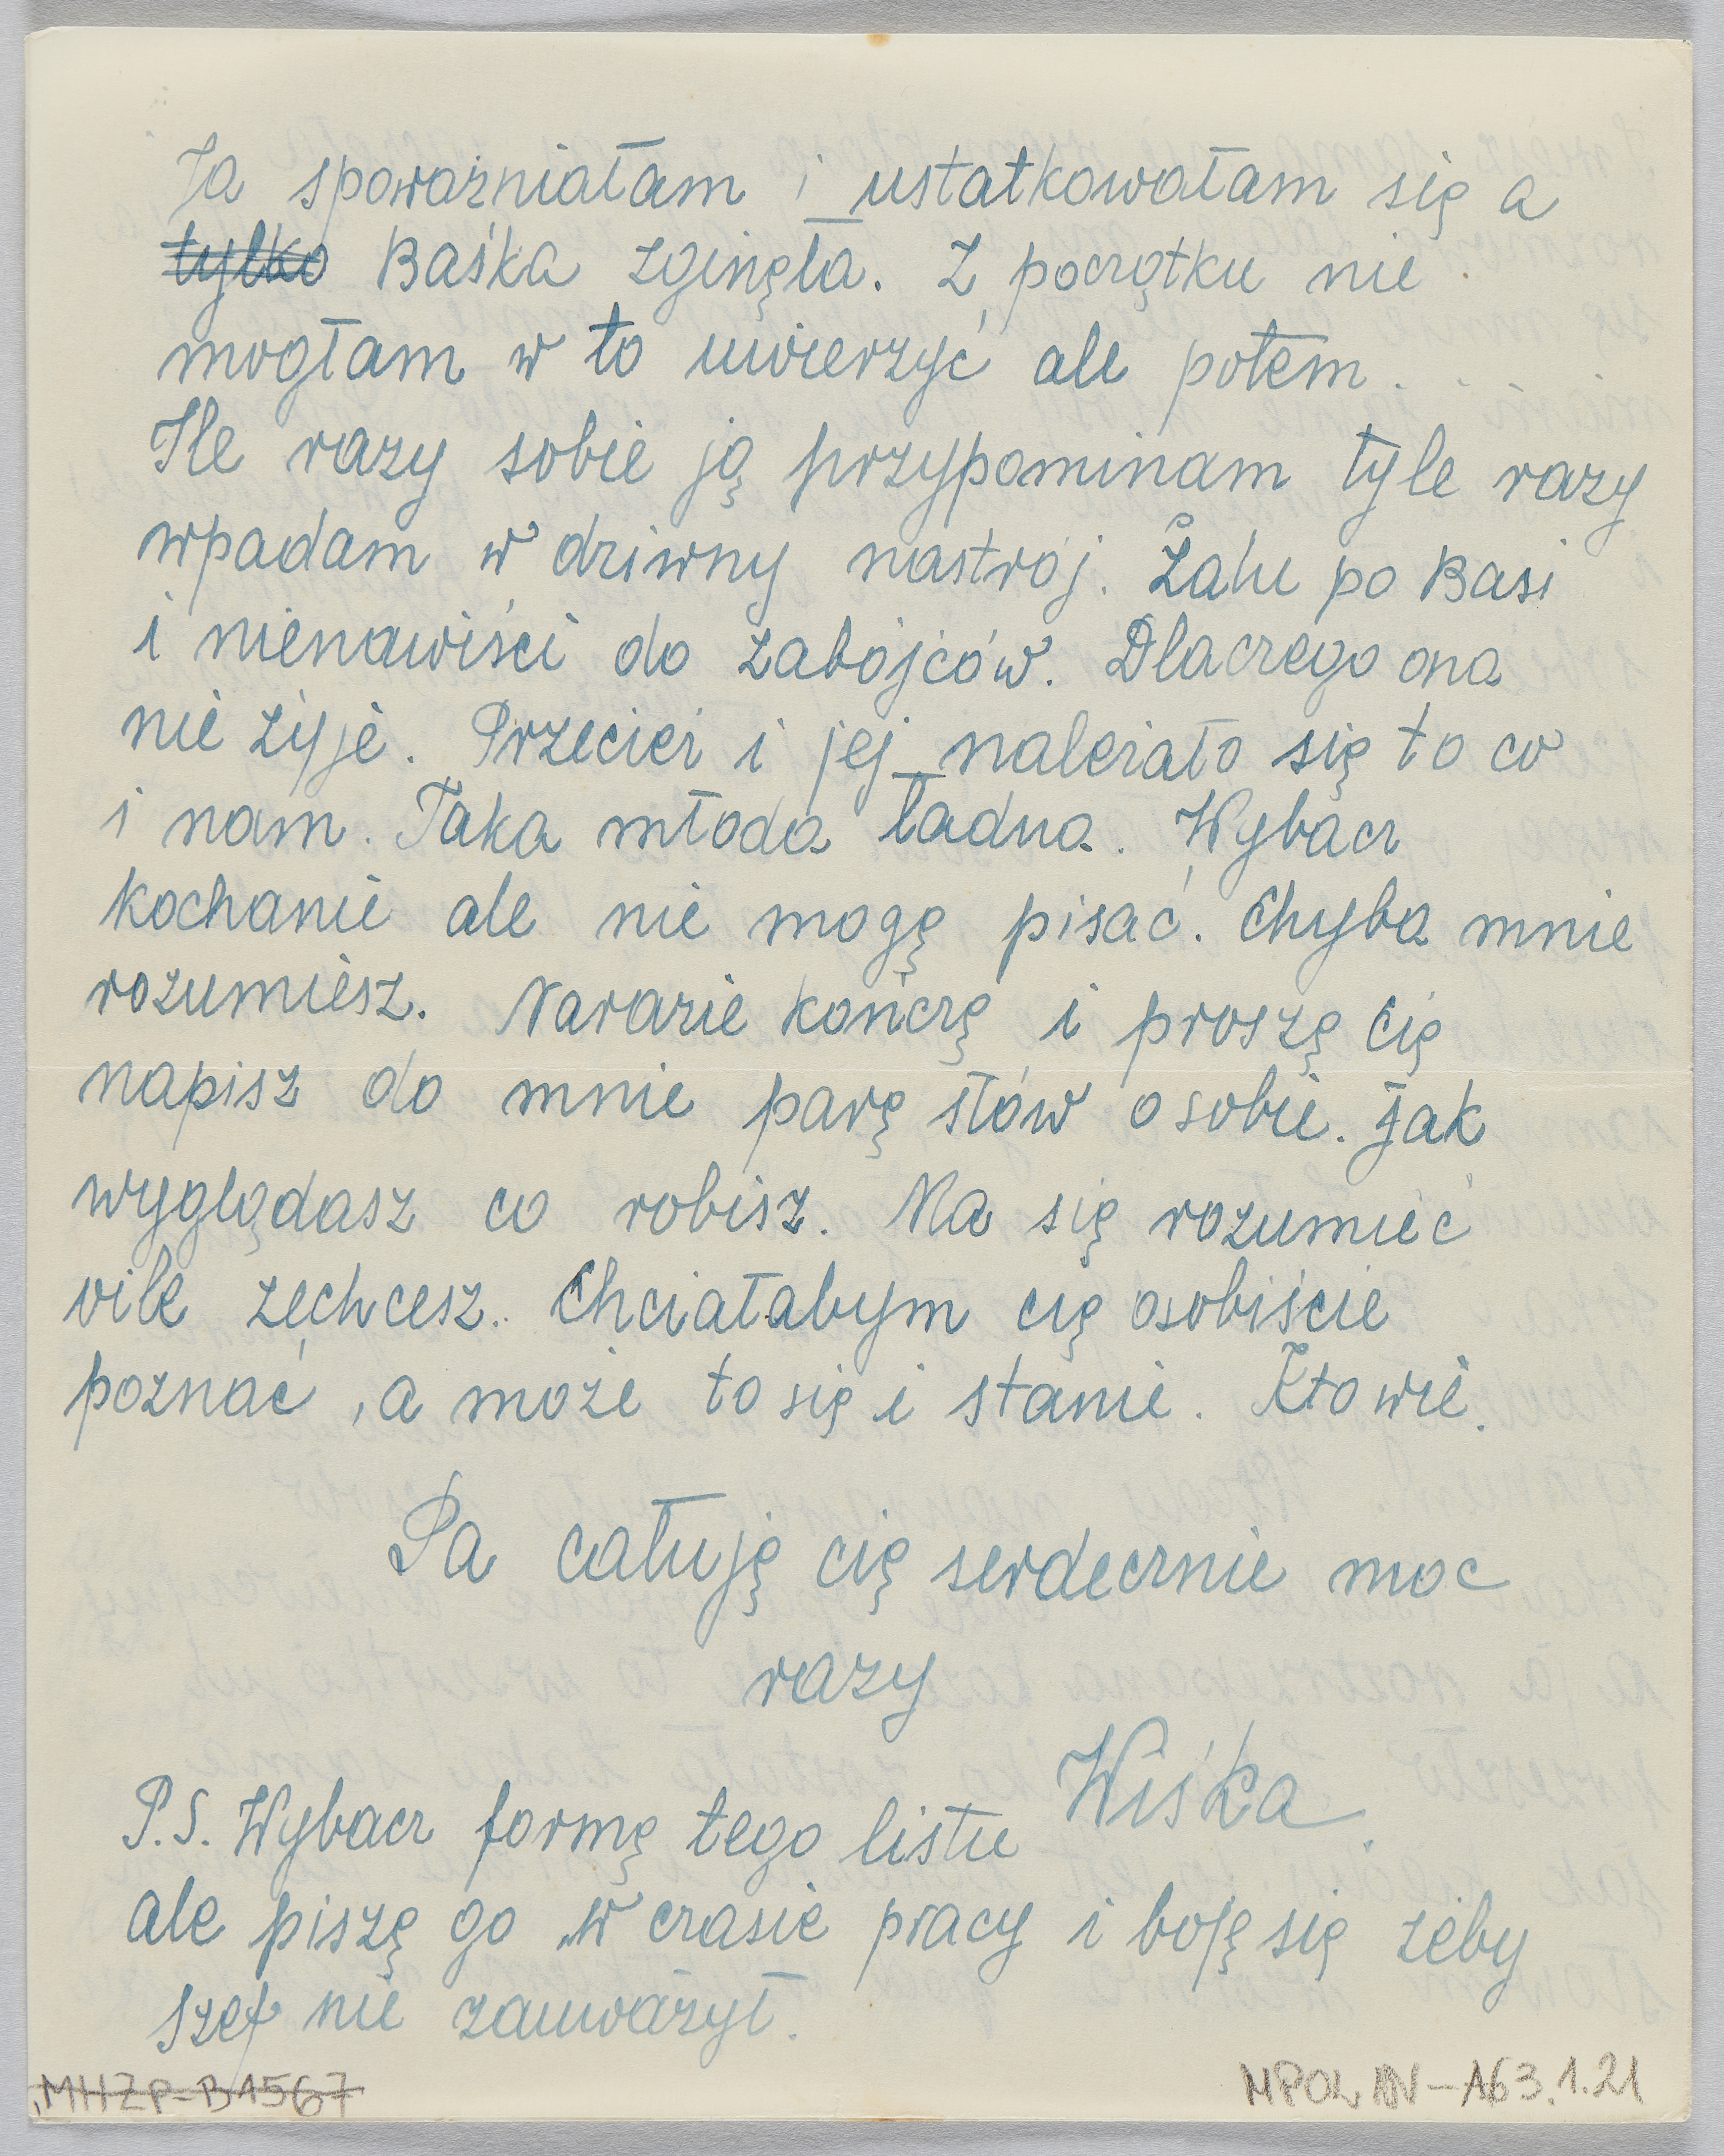 Ja spoważniałam i ustatkowałam się a
tylko Baśka zginęła. Z początku nie
mogłam w to uwierzyć ale potem...
Ile razy sobie ją przypominam tyle razy
wpadam w dziwny nastrój. Żalu po Basi
i nienawiści do zabójców. Dlaczego ona
nie żyje. Przecież i jej należało się to co
i nam. Taka młoda ładna. Wybacz
kochanie ale nie mogę pisać. Chyba mnie
rozumiesz. Narazie kończę i proszę cię
napisz do mnie parę słów o sobie. Jak
wyglądasz co robisz. Ma się rozumieć
oile zechcesz. Chciałabym cię osobiście
poznać, a może to się i stanie. Kto wie.
Pa całuję cię serdecznie moc
razy
Wiśka.
P.S. Wybacz formę tego listu
ale piszę go w czasie pracy i boję się żeby
szef nie zauważył.
MHŻP-B1567
MPOLIN-A63.1.21